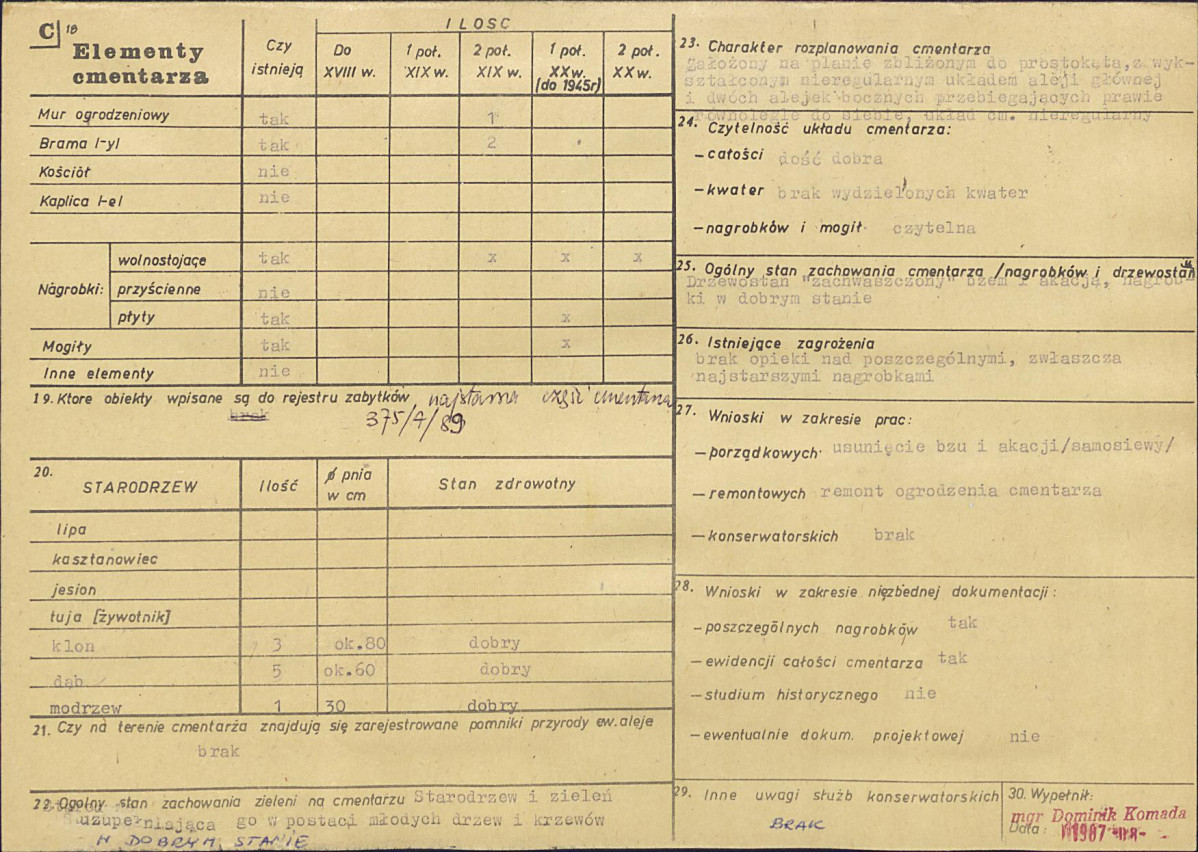 C 18
Elementy cmentarza
Czy istnieją
ILOSC
Do XVIII w.
1 poł. XIX w.
2 poł. XIX w.
1 poł. XX w. (do 1945r)
2 poł. XX w.
Mur ogrodzeniowy tak 1
Brama /-y/ tak 2
Kościół nie
Kaplica /-e/ nie
Nagrobki:
wolnostojące tak x x x
przyścienne nie
płyty tak x
Mogiły tak x
Inne elementy nie
19. Ktore obiekty wpisane są do rejestru zabytków najstarsza część cmentarza
brak 375/A/89
20.
STARODRZEW Ilość ø pnia w cm Stan zdrowotny
lipa
kasztanowiec
jesion
tuja [żywotnik]
klon 3 ok.80 dobry
dąb 5 ok.60 dobry
modrzew 1 30 dobry
21. Czy na terenie cmentarza znajdują się zarejestrowane pomniki przyrody ew. aleje
brak
22. Ogolny stan zachowania zieleni na cmentarzu Starodrzew i zieleń
uzupełniająca go w postaci młodych drzew i krzewów
W DOBRYM STANIE
23. Charakter rozplanowania cmentarza
Założony na planie zbliżonym do prostokąta, z wyk-
ształconym nieregularnym układem aleji głównej
i dwóch alejek bocznych przebiegających prawie
równolegle do siebie, układ cm. nieregularny
24. Czytelność układu cmentarza:
- całości dość dobra
- kwater brak wydzielonych kwater
- nagrobków i mogił czytelna
25. Ogólny stan zachowania cmentarza /nagrobków i drzewostanu
Drzewostan "zachwaszczony" bzem i akacją, nagrob-
ki w dobrym stanie
26. Istniejące zagrożenia
brak opieki nad poszczególnymi, zwłaszcza
najstarszymi nagrobkami
27. Wnioski w zakresie prac:
- porządkowych usunięcie bzu i akacji/samosiewy/
- remontowych remont ogrodzenia cmentarza
- konserwatorskich brak
28. Wnioski w zakresie niezbednej dokumentacji:
- poszczególnych nagrobków tak
- ewidencji całości cmentarza tak
- studium historycznego nie
- ewentualnie dokum. projektowej nie
29. Inne uwagi służb konserwatorskich
BRAK
30. Wypełnił:
mgr Dominik Komada
Data: 1987